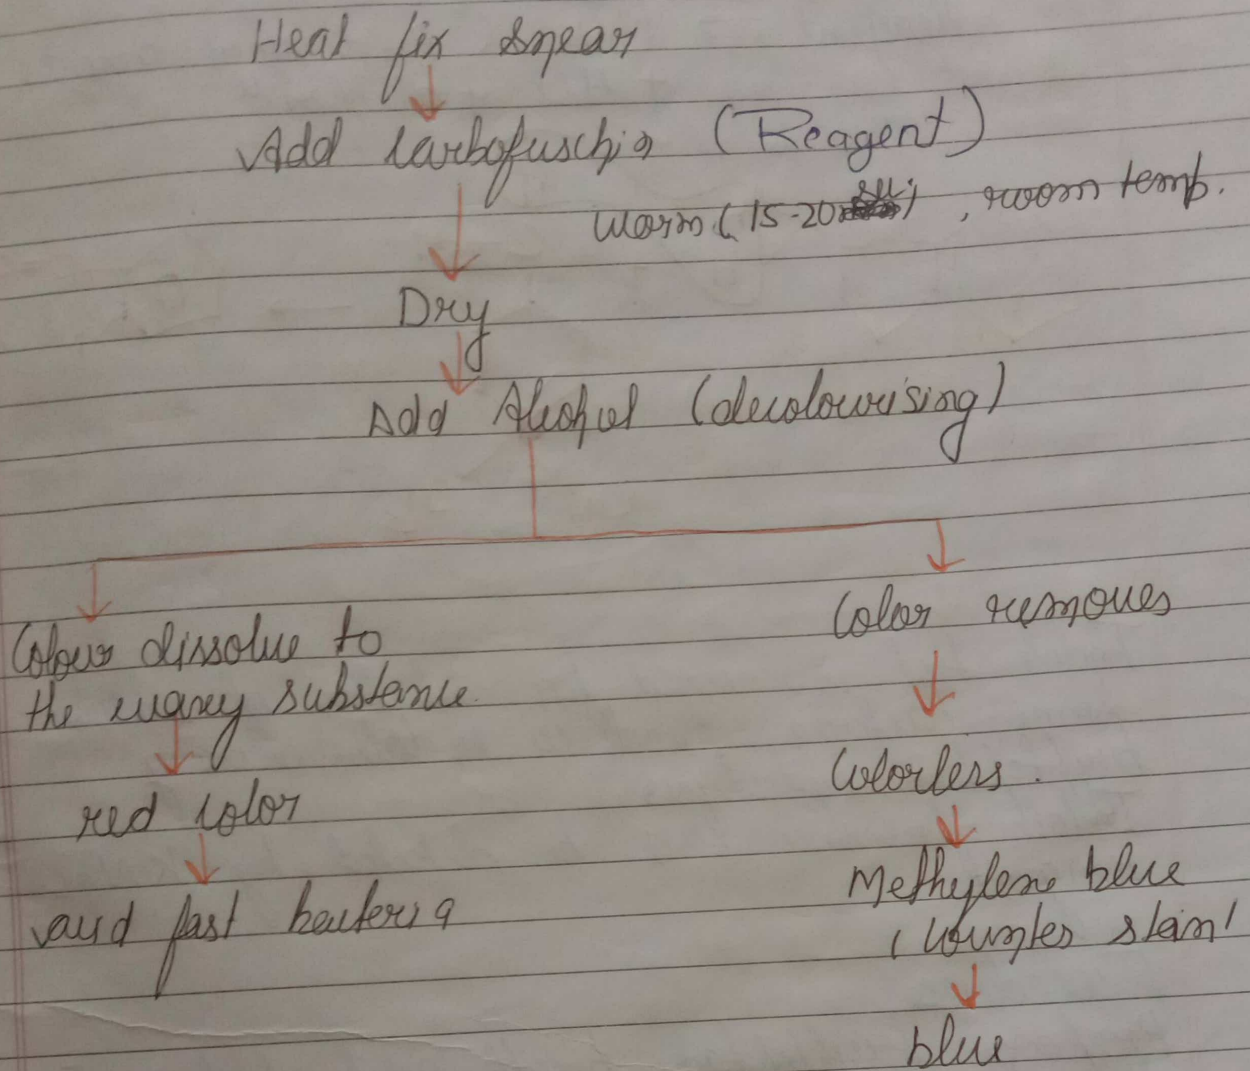 Heat fix smear
Add Carbofuschin (Reagent)
warm (15-20 , room temp.
Dry
Add Alcohol (decolourising)
Colour dissolve to
the waxy substance.
red color
acid fast bacteria
Color removes
Colorless.
Methylene blue
(Counter stain)
blue